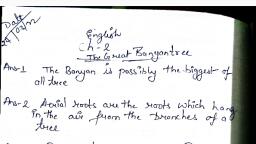 Date
29/04/22
English
Ch-2
The Great Banyantree
Ans-1 The Banyan is possibly the biggest of
all tree
Ans-2 Aerial roots are the roots which hang
in the air from the branches of a
tree